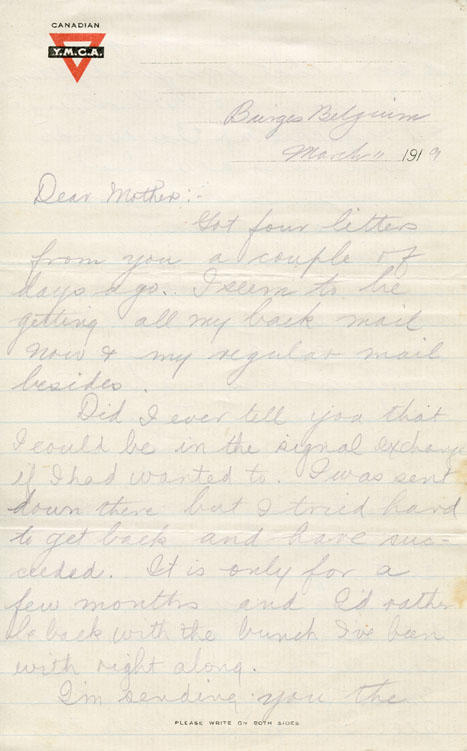 CANADIAN
Y.M.C.A.
Burges Belgium
March 11 1919
Dear Mother:-
Got four letters
from you a couple of
days ago. I seem to be
getting all my back mail
now & my regular mail
besides.
Did I ever tell you that
I could be in the signal exchange
if I had wanted to. I was sent
down there but I tried hard
to get back and have suc-
ceeded. It is only for a
few months and I'd rather
be back with the bunch I've been
with right along.
I'm sending you the
PLEASE WRITE ON BOTH SIDES